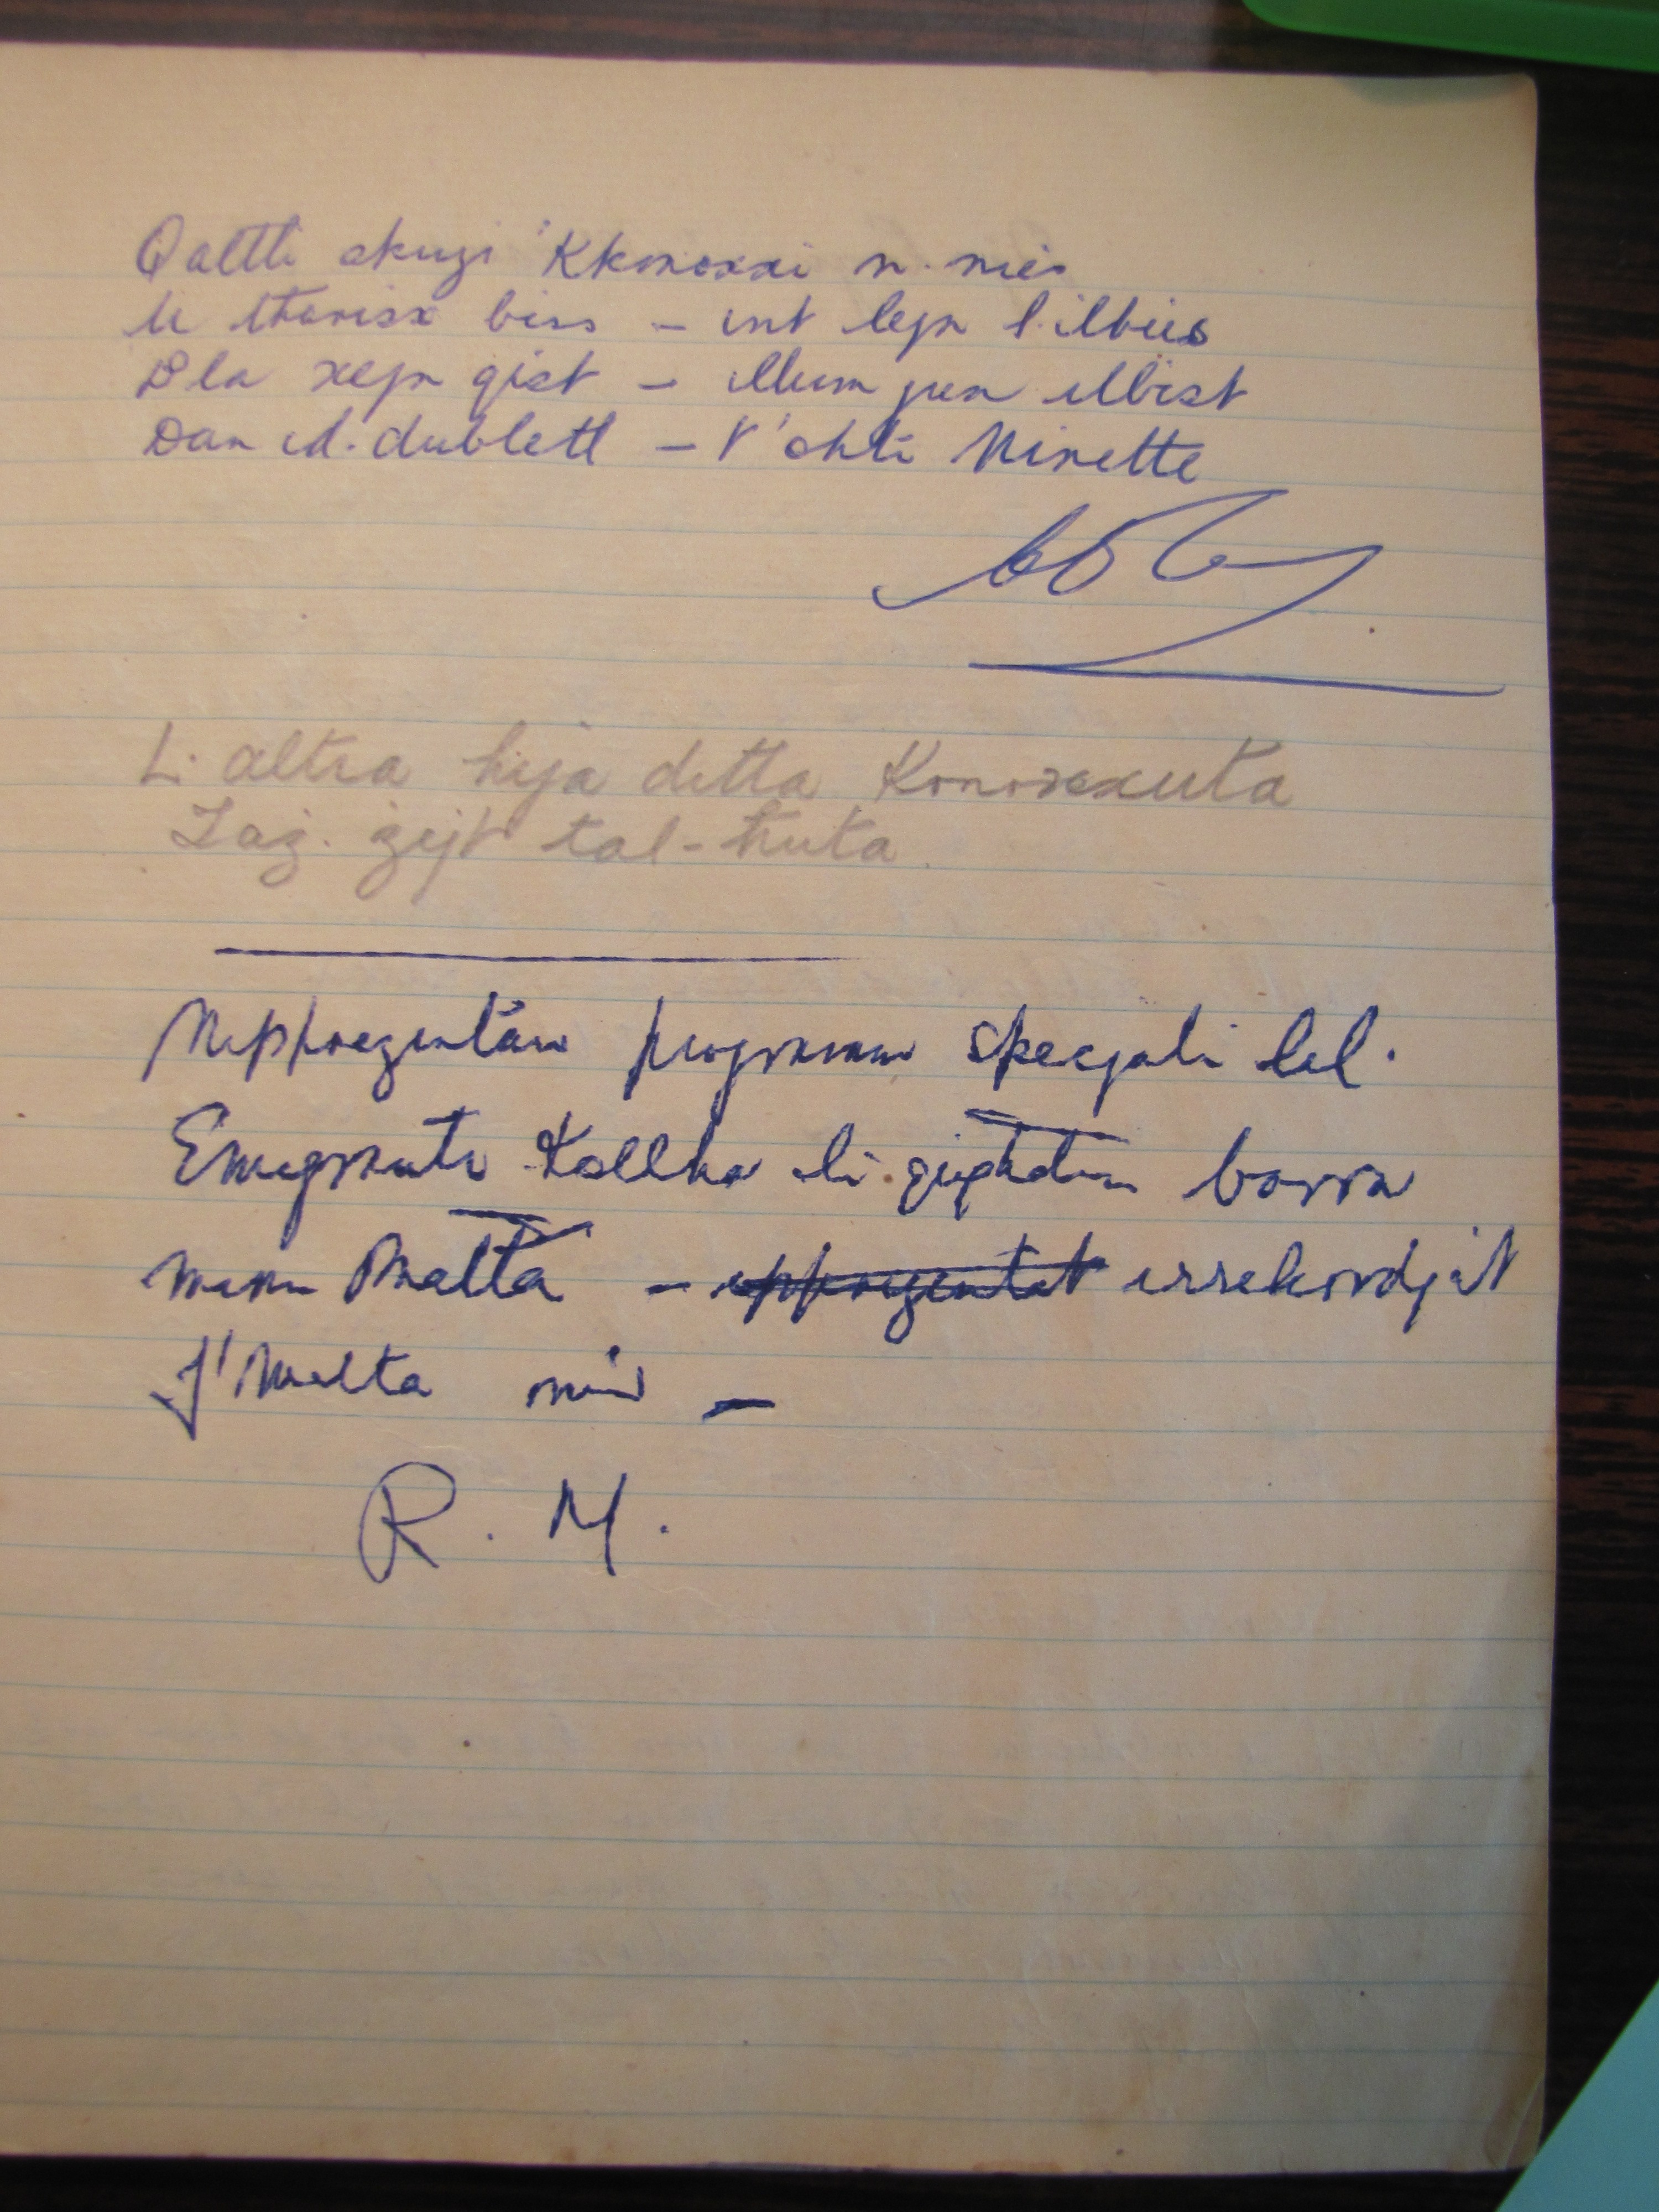 Qaltli skuzi Kkonoxxi n-nies
U tħarisx biss – int lejn l-ilbies
Bla xejn gist – illum jien ilbist
Dan id-dublett – t'oħti Ninette
L-altra hija detta Konoxxuta
Żaż-żejt tal-ħuta.
Nippreżentaw programm speċjali lal-
Emigranti Kollha li jgħixu barra
minn Malta – ippreżentat irrekordjat
f'Malta
R. M.